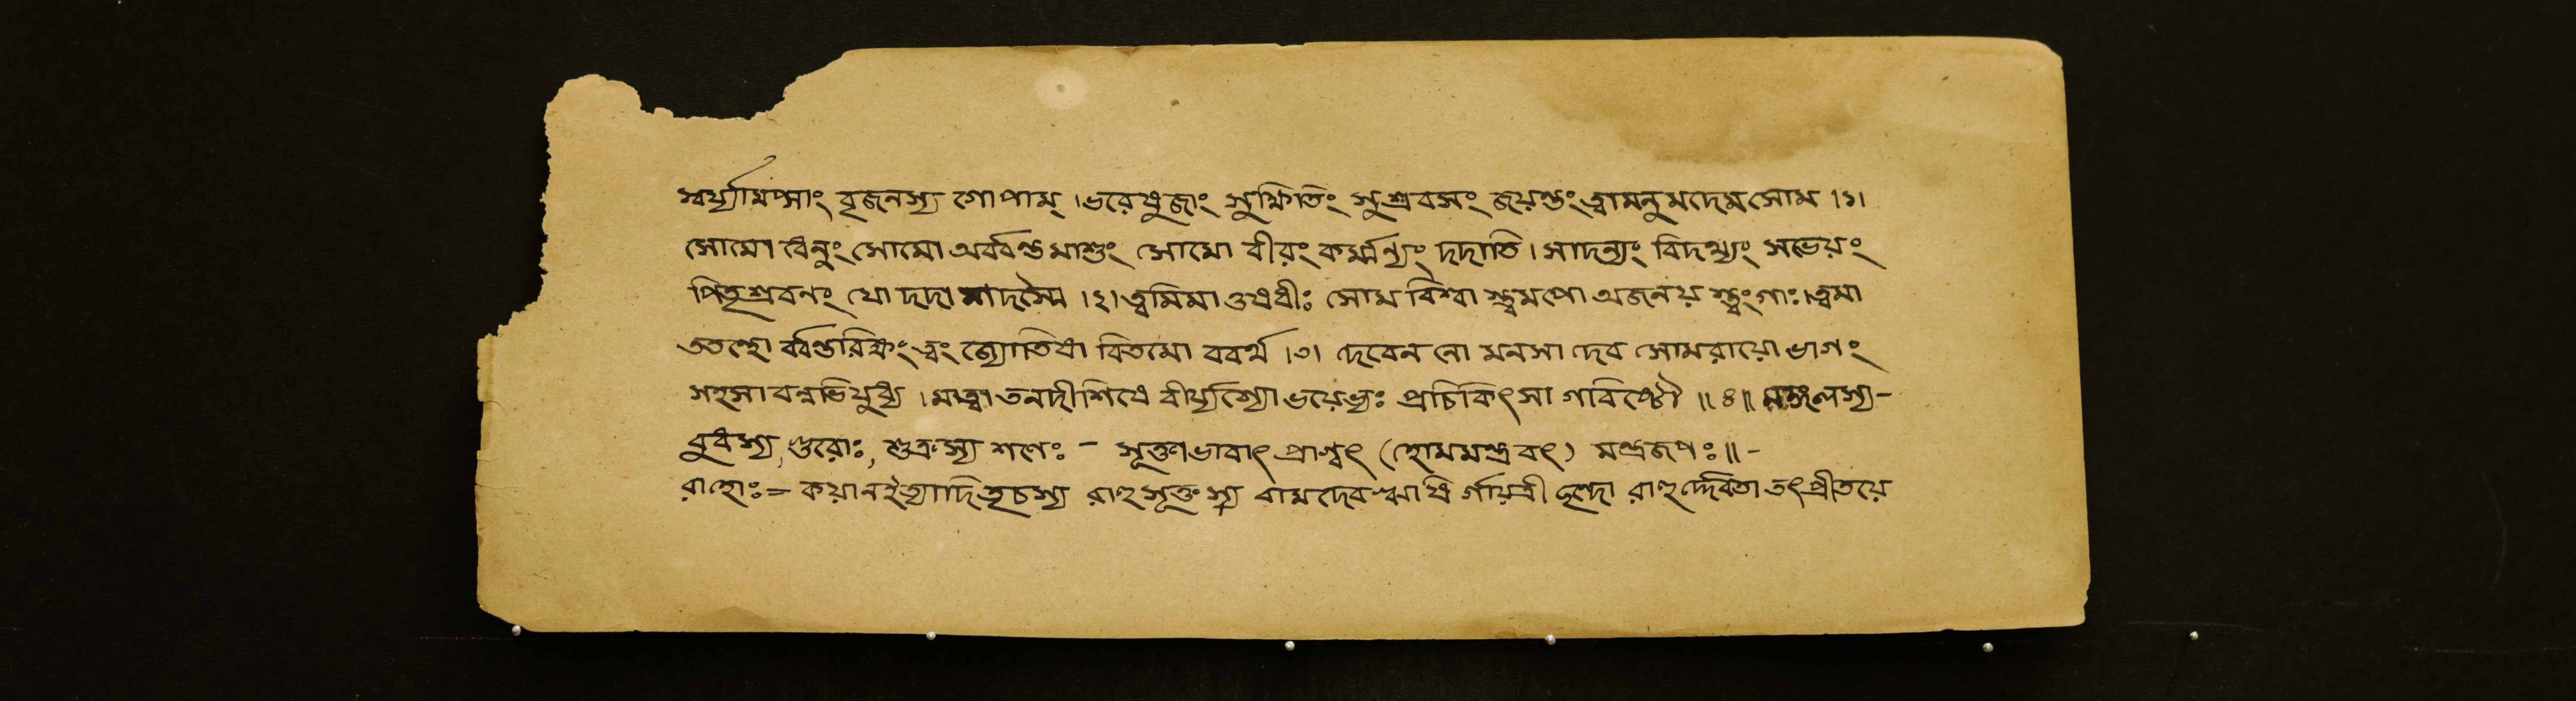 স্বর্য্যামপ্সাং বৃজনস্য গোপাম্। ভরেষুজাং সুক্ষিতিং সুশ্রবসং জয়ন্তং ত্বামনুমদেম সোম।১।
সোমো ধেনুং সোমো অর্ব্বন্তমাশুং সোমো বীরং কর্ম্মন্যং দদাতি। সাদন্যং বিদথ্যং সভেয়ং
পিতৃশ্রবনং যো দদাশদস্মৈ।২। ত্বমিমা ওষধীঃ সোম বিশ্বা স্ত্বমপো অজনয় স্ত্বংগাঃ। ত্বমা
ততন্থো র্ব্বন্তরিক্ষং ত্বং জ্যোতিষা বিতমো ববর্থ।৩। দেবেন নো মনসা দেব সোমরায়ো ভাগং
সহসা বন্নভিযুধ্য। মাত্বা তনদীশিষে বীর্য্যস্যো ভয়েভ্যঃ প্রচিকিৎসা গবিষ্টৌ॥৪॥ মঙ্গলস্য-
বুধস্য, গুরোঃ, শুক্রস্য শনেঃ - সূক্তাভাবাৎ প্রাগ্বৎ (হোমমন্ত্রবৎ) মন্ত্রজপঃ॥-
রাহোঃ= কয়ানইত্যাদি তৃচস্য রাহুসূক্তস্য বামদেব ঋষি র্গায়ত্রী ছন্দো রাহুর্দ্দেবতা তৎপ্রীতয়ে